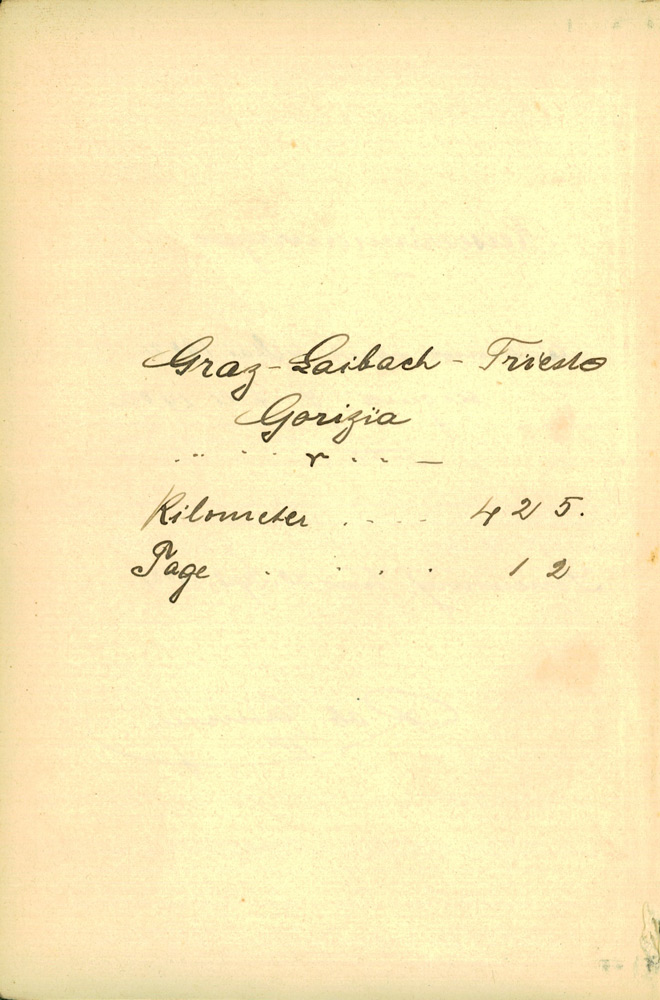 Graz - Laibach - Trieste
Gorizia
Kilometer . . . . 425.
Tage . . . . 12